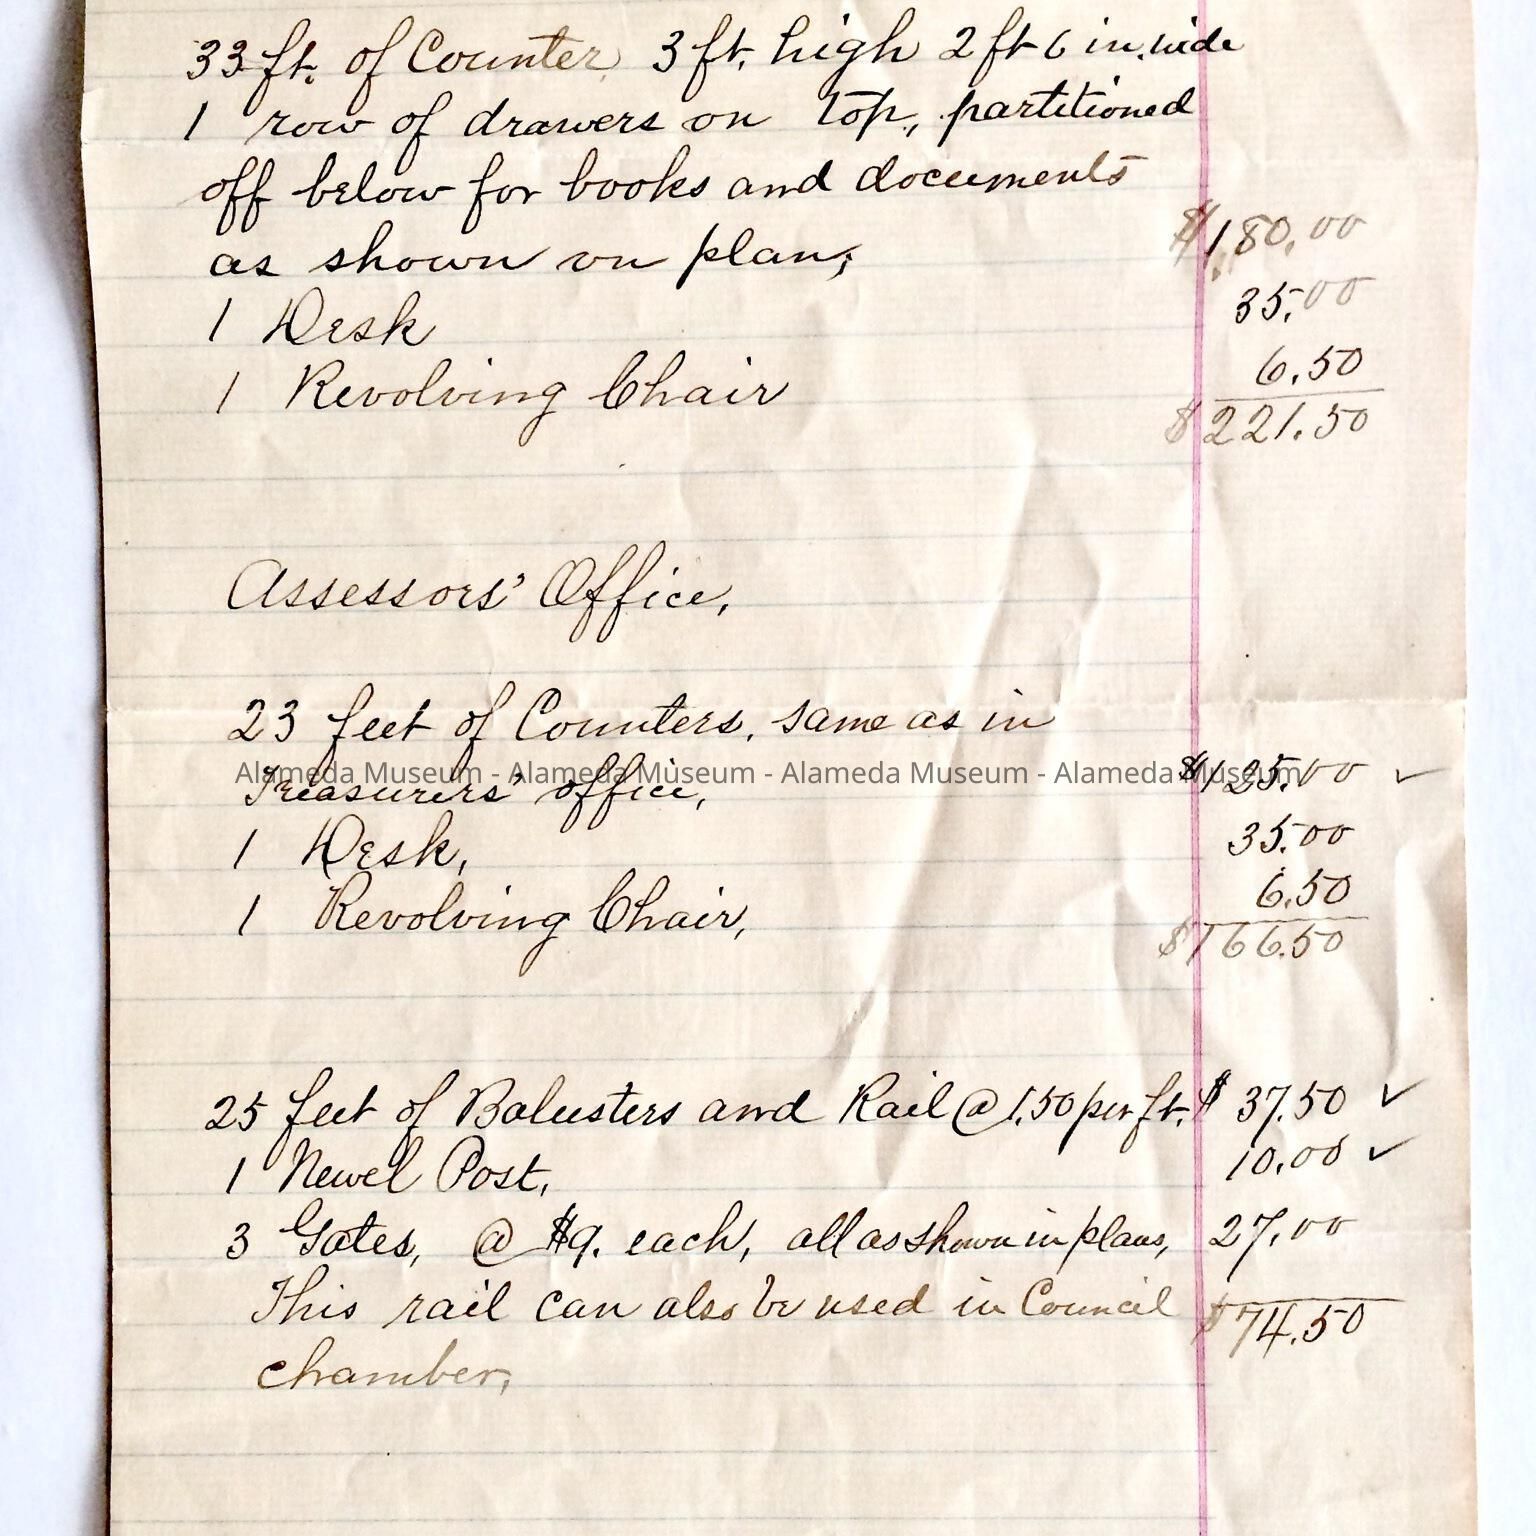 33 ft. of Counter, 3 ft. high 2 ft 6 in. wide
1 row of drawers on top, partitioned
off below for books and documents
as shown on plan; $180.00
1 Desk 35.00
1 Revolving Chair 6.50
$221.50
Assessors' Office,
23 feet of Counters, same as in
Alameda Museum - Alameda Museum - Alameda Museum - Alameda Museum
Treasurers' office, $125.00 ✓
1 Desk, 35.00
1 Revolving Chair, 6.50
$166.50
25 feet of Balusters and Rail @ 1.50 per ft. $37.50 ✓
1 Newel Post, 10.00 ✓
3 Gates, @ $9. each, all as shown in plans, 27.00
This rail can also be used in Council $74.50
chamber,